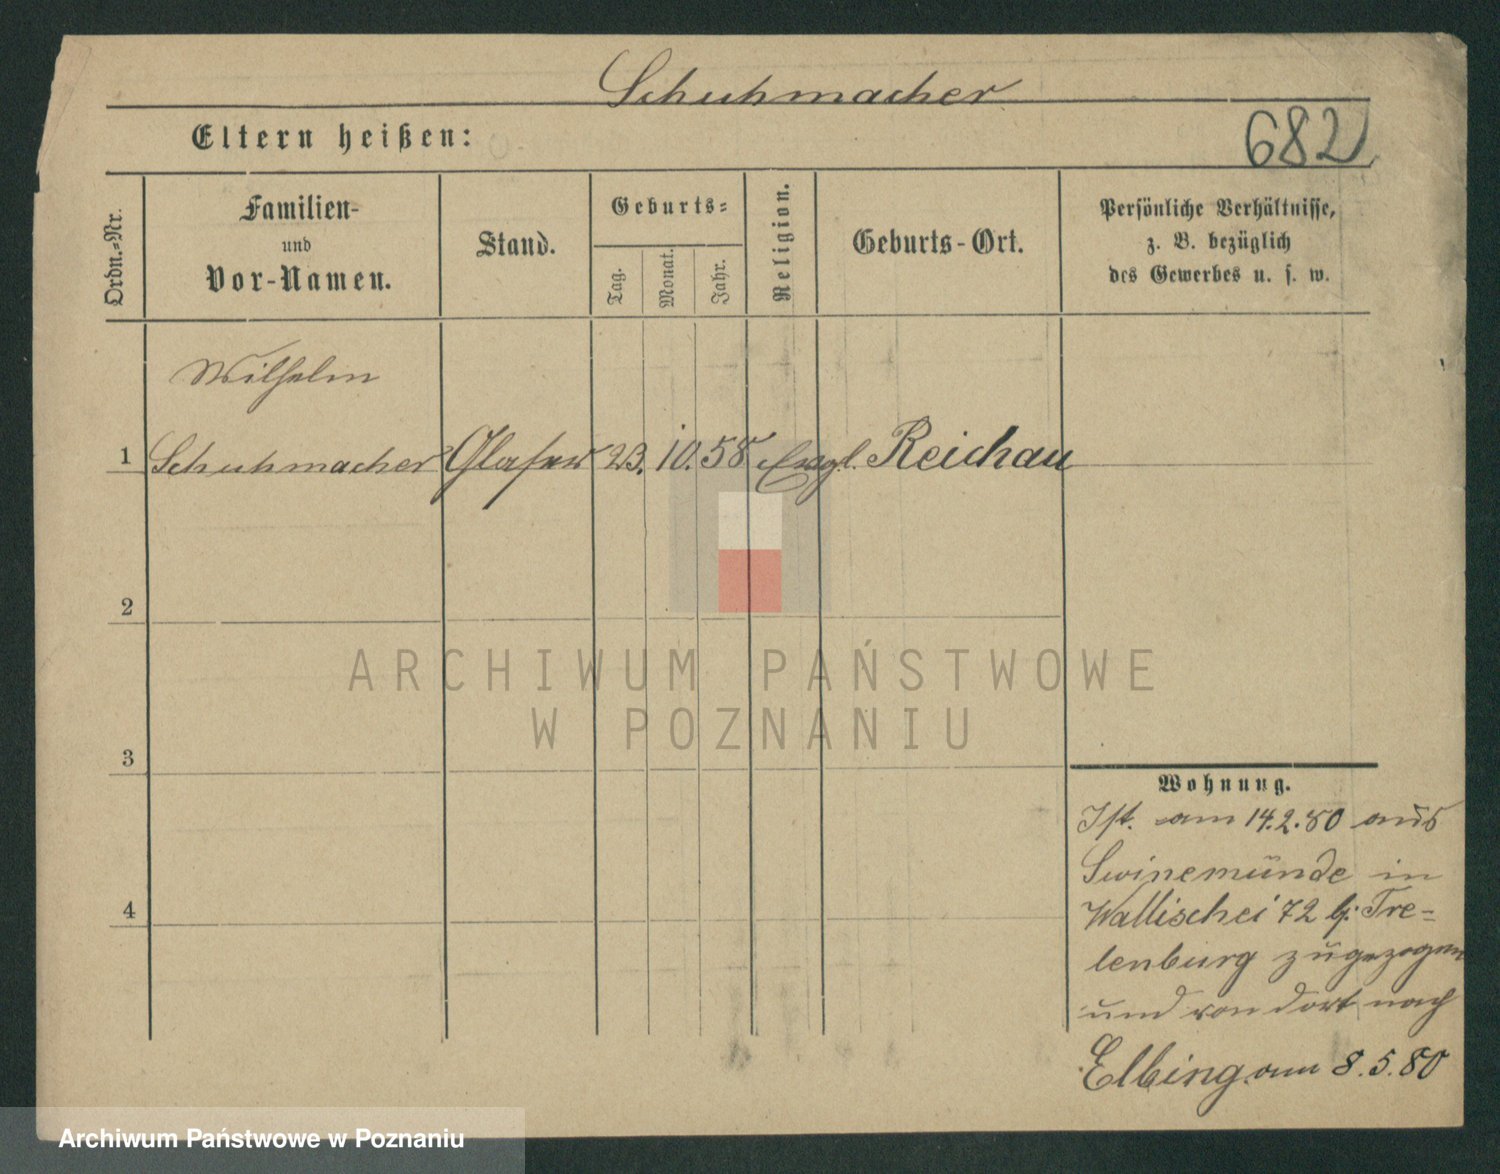 Schuhmacher
Eltern heißen:
682
Ordn.-Nr.
Familien-
und
Vor-Namen.
Stand.
Geburts-
Tag.
Monat.
Jahr.
Religion.
Geburts-Ort.
Persönliche Verhältnisse,
z. B. bezüglich
des Gewerbes u. s. w.
Wilhelm
1 Schuhmacher Glaser 23. 10. 58 Evgl. Reichau
2
3
4
Wohnung.
Ist. am 14.2.80 aus
Swinemünde in
Wallischei 72 b. Tre-
lenburg zugezogen
und von dort nach
Elbing am 8.5.80
ARCHIWUM PAŃSTWOWE
W POZNANIU
Archiwum Państwowe w Poznaniu